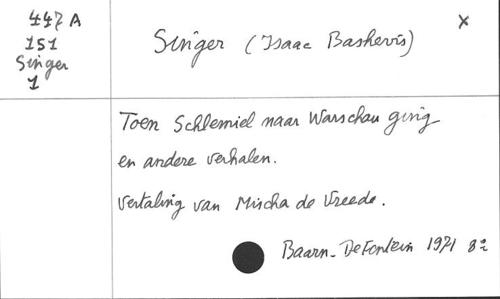 447 A
151
Singer
1
Singer (Isaac Bashevis)
x
Toen Schlemiel naar Warschau ging
en andere verhalen.
Vertaling van Mischa de Vreede.
Baarn - De Fontein 1971 8º